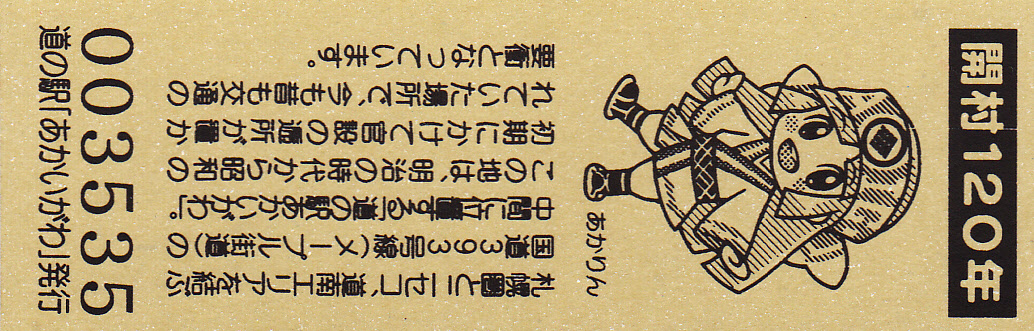 開村120年
あかりん
札幌圏とニセコ、道南エリアを結ぶ
国道393号線(メープル街道)の
中間に位置する「道の駅あかいがわ」。
この地は、明治の時代から昭和の
初期にかけて官設の逓所が置か
れていた場所で、今も昔も交通の
要衝となっています。
003535
道の駅「あかいがわ」発行